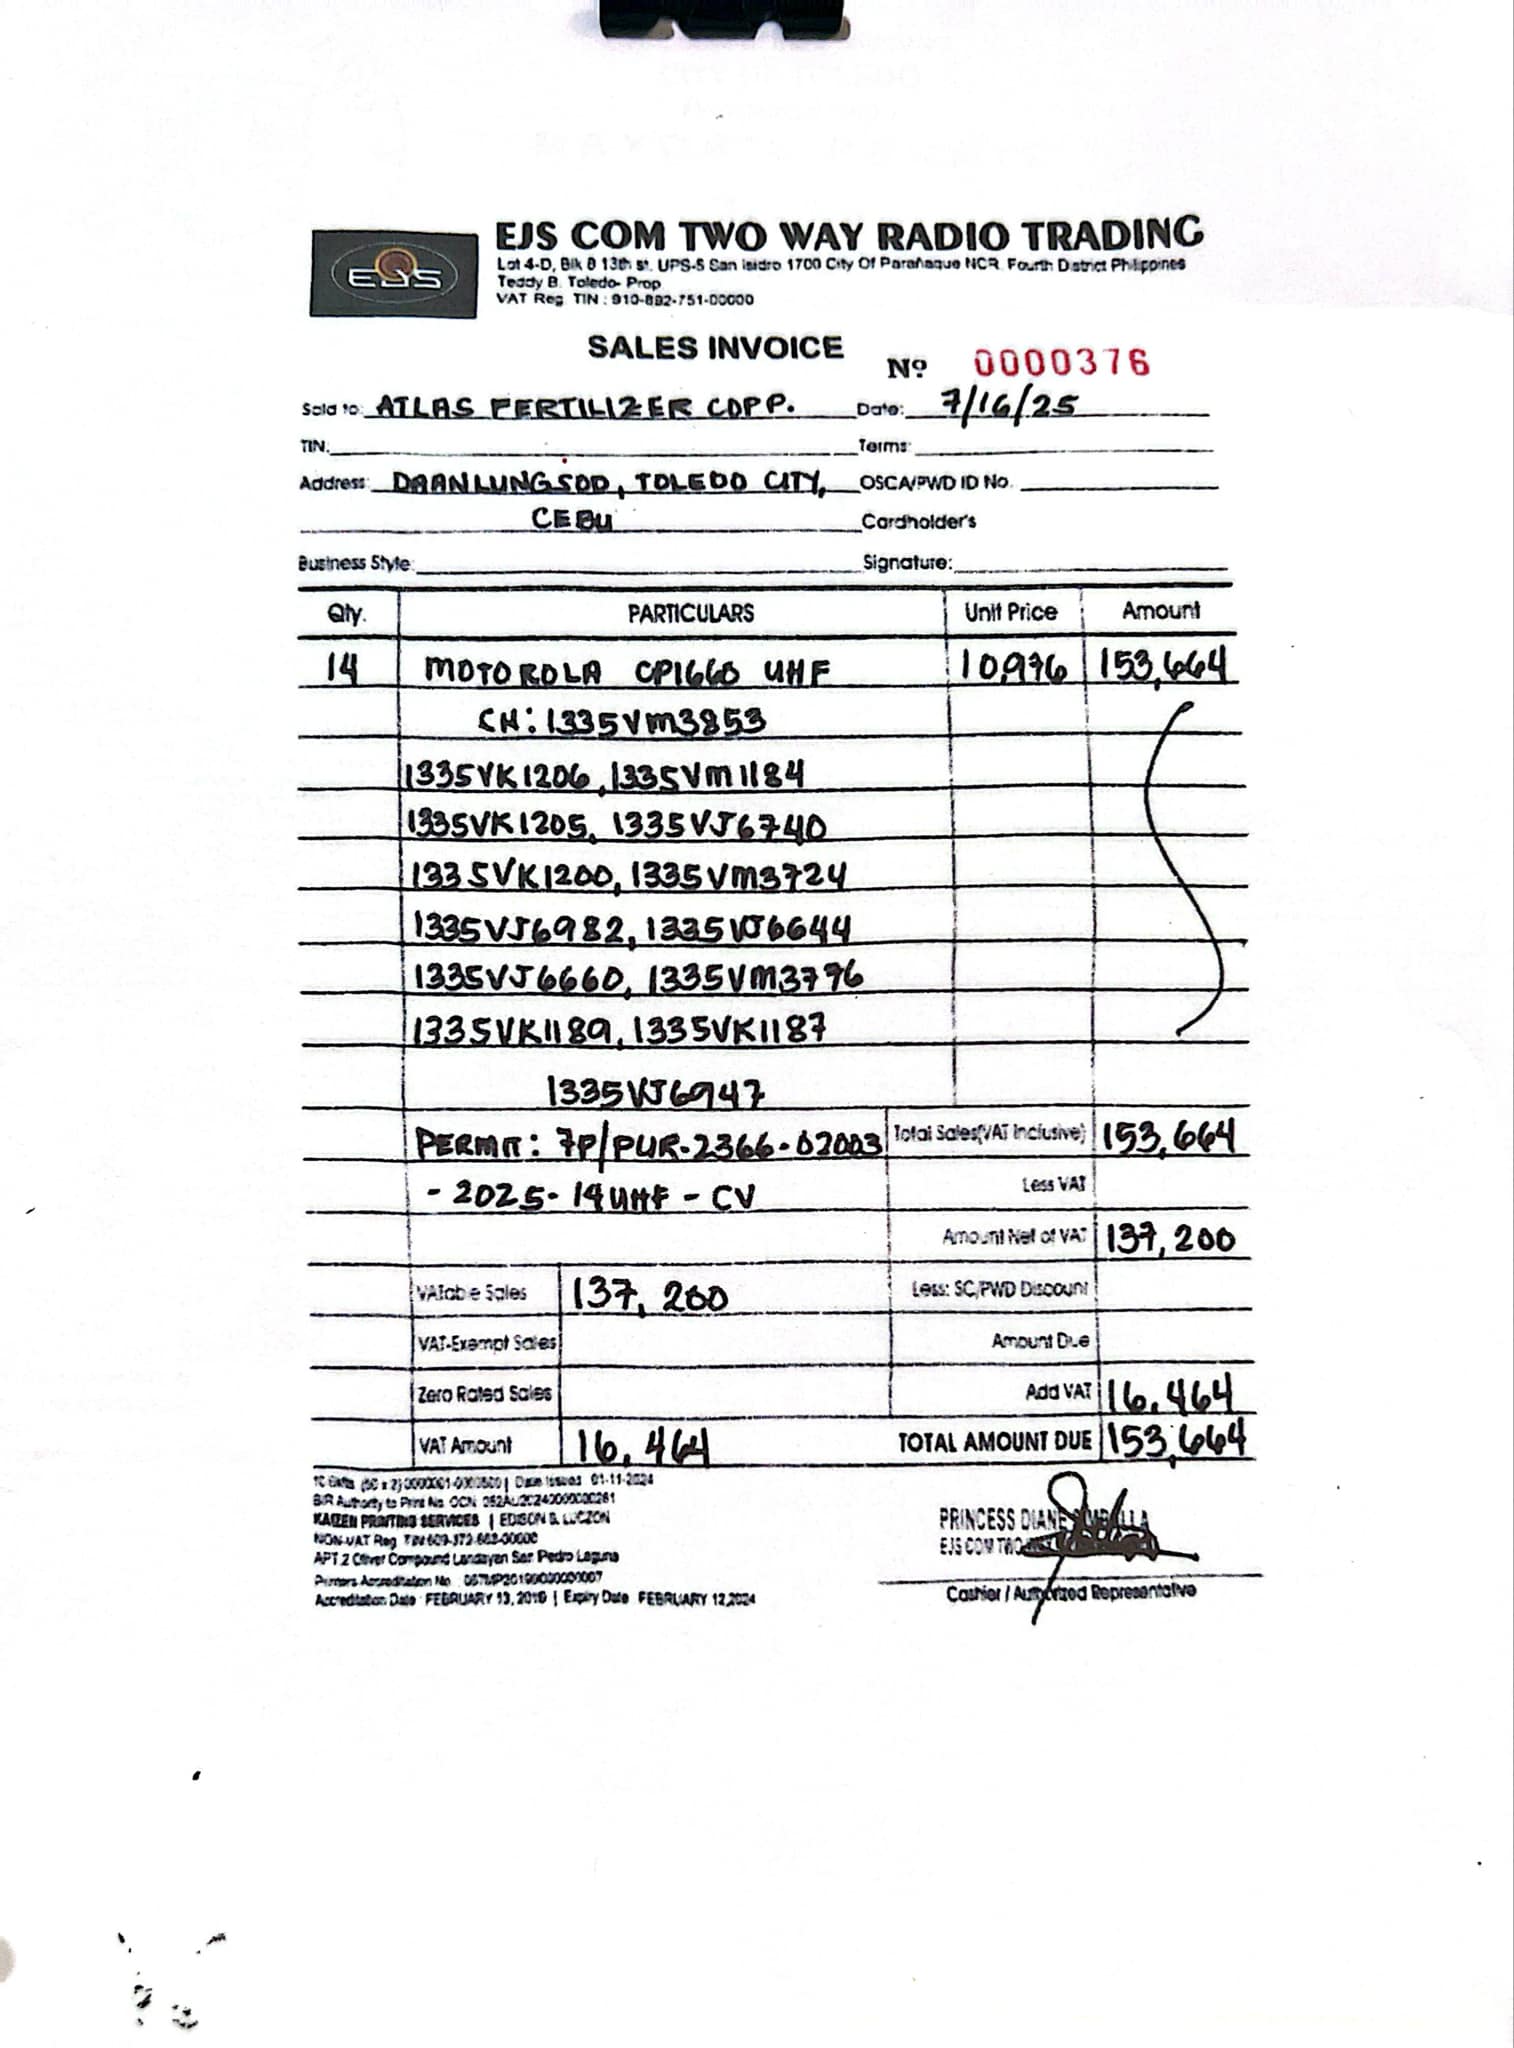 EJS
EJS COM TWO WAY RADIO TRADING
Lot 4-D, Blk 8 13th st. UPS-5 San Isidro 1700 City Of Parañaque NCR Fourth District Philippines
Teddy B. Toledo- Prop
VAT Reg TIN : 910-892-751-00000
SALES INVOICE
Nº 0000376
Sold to: ATLAS FERTILIZER CORP. Date: 7/16/25
TIN: Terms:
Address: DAANLUNGSOD, TOLEDO CITY, OSCA/PWD ID No.
CEBU Cardholder's
Business Style: Signature:
Qty. PARTICULARS Unit Price Amount
14 MOTOROLA CP1660 UHF 10,976 153,664
SN: 1335VM3853
1335VK1206, 1335VM1184
1335VK1205, 1335VJ6740
1335VK1200, 1335VM3724
1335VJ6982, 1335VJ6644
1335VJ6660, 1335VM3776
1335VK1189, 1335VK1187
1335VJ6947
PERMIT: 7P/PUR-2366-02003 Total Sales(VAT Inclusive) 153,664
- 2025- 14UHF - CV Less VAT
Amount Net of VAT 137,200
VATable Sales 137,200 Less: SC/PWD Discount
VAT-Exempt Sales Amount Due
Zero Rated Sales Add VAT 16,464
VAT Amount 16,464 TOTAL AMOUNT DUE 153,664
Date Issued 01-11-2024
BIR Authority to Print No. OCN
KAIZEN PRINTING SERVICES | EDISON B. LUCZON
NON-VAT Reg TIN
APT 2 Oliver Compound Landayan San Pedro Laguna
Printers Accreditation No
Accreditation Date : FEBRUARY 13, 2019 | Expiry Date FEBRUARY 12,2024
PRINCESS DIANE
EJS COM TWO
Cashier / Authorized Representative